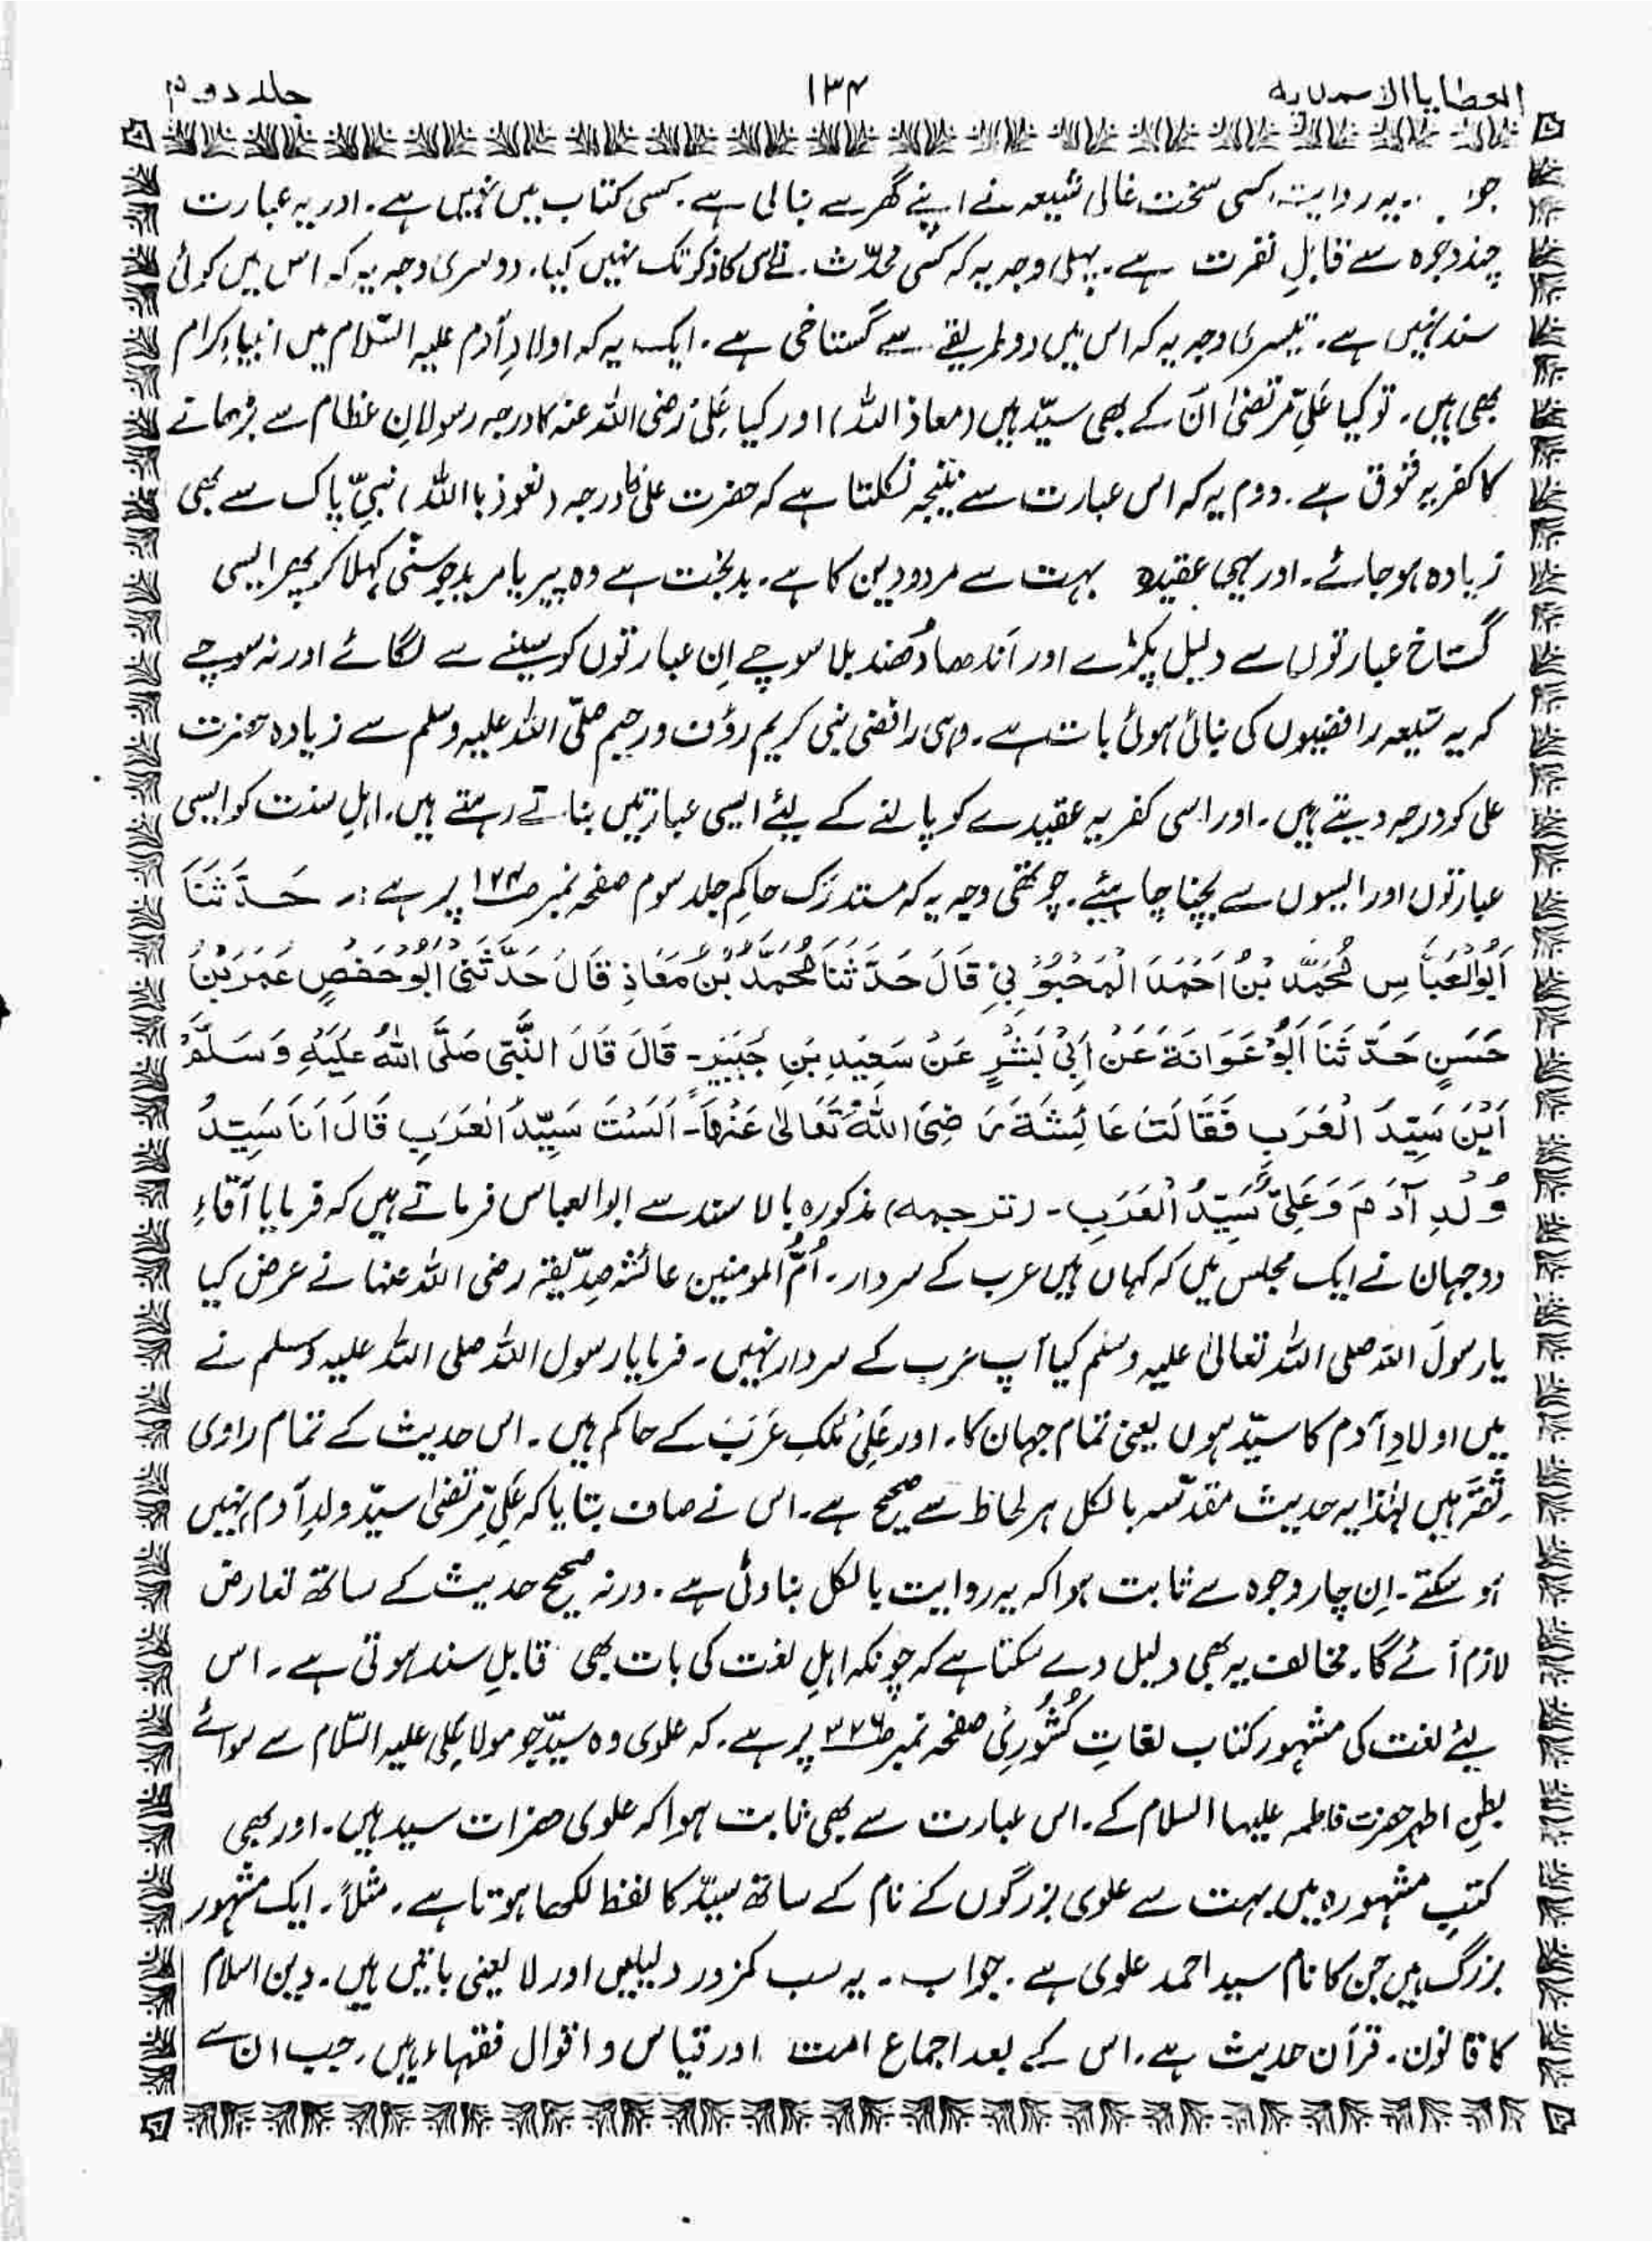 العطایا الاحمدیہ ۱۳۴ جلد دوم
جو یہ روایت کسی سخت غالی شیعہ نے اپنے گھر سے بنالی ہے۔ کسی کتاب میں نہیں ہے۔ اور یہ عبارت
چند وجوہ سے قابلِ نفرت ہے۔ پہلی وجہ یہ کہ کسی محدّث نے اس کا ذکر تک نہیں کیا۔ دوسری وجہ یہ کہ اس میں کوئی
سند نہیں ہے۔ تیسری وجہ یہ کہ اس میں دو طریقے سے گستاخی ہے۔ ایک یہ کہ اولادِ آدم علیہ السّلام میں انبیاءِ کرام
بھی ہیں۔ تو کیا علیِّ مرتضیٰ اُن کے بھی سیّد ہیں (معاذ اللہ) اور کیا علی رضی اللہ عنہ کا درجہ رسولانِ عظام سے بڑھانے
کا کفریہ فتوق ہے۔ دوم یہ کہ اس عبارت سے نتیجہ نکلتا ہے کہ حضرت علی کا درجہ (نعوذ با اللہ) نبیِّ پاک سے بھی
زیادہ ہو جائے۔ اور یہی عقیدہ بہت سے مردودین کا ہے۔ بدبخت ہے وہ پیر یا مرید جو سنّی کہلا کر پھر ایسی
گستاخ عبارتوں سے دلیل پکڑے اور اَندھا دُھند بلا سوچے اِن عبارتوں کو سینے سے لگائے اور نہ سوچے
کہ یہ شیعہ رافضیوں کی بنائی ہوئی بات ہے۔ وہی رافضی نبی کریم رؤف و رحیم صلّی اللہ علیہ وسلم سے زیادہ حضرت
علی کو درجہ دیتے ہیں۔ اور اسی کفریہ عقیدے کو پالنے کے لئے ایسی عبارتیں بناتے رہتے ہیں۔ اہلِ سنت کو ایسی
عبارتوں اور ایسوں سے بچنا چاہیئے۔ چوتھی وجہ یہ کہ مستدرَک حاکم جلد سوم صفحہ نمبر ص۱۲۴ پر ہے :۔ حَدَّثَنَا
اَبُو الْعَبَّاسِ مُحَمَّدُ بْنُ اَحْمَدَ الْمَحْبُوْبِیْ قَالَ حَدَّثَنَا مُحَمَّدُ بْنُ مَعَاذٍ قَالَ حَدَّثَنِیْ اَبُوْ حَفْصٍ عَمَرَ بْنُ
حَسَنٍ حَدَّثَنَا اَبُوْ عَوَانَۃَ عَنْ اَبِیْ بَشْرٍ عَنْ سَعِیْدِ بْنِ جَبَیْرٍ۔ قَالَ قَالَ النَّبِیِّ صَلَّی اللہُ عَلَیْہِ وَسَلَّمَ
اَیْنَ سَیِّدُ الْعَرَبِ فَقَالَتْ عَائِشَۃَ رَضِیَ اللہُ تَعَالٰی عَنْہَا۔ اَلَسْتَ سَیِّدُ الْعَرَبِ قَالَ اَنَا سَیِّدُ
وُلْدِ آدَمَ وَعَلِیٌّ سَیِّدُ الْعَرَبِ۔ (ترجمہ) مذکورہ بالا سند سے ابو العباس فرماتے ہیں کہ فرمایا آقاءِ
دوجہان نے ایک مجلس میں کہ کہاں ہیں عرب کے سردار۔ اُمُّ المومنین عائشہ صِدّیقہ رضی اللہ عنہا نے عرض کیا
یا رسولَ اللہ صلی اللہ تعالیٰ علیہ وسلم کیا آپ عرب کے سردار نہیں۔ فرمایا رسول اللہ صلی اللہ علیہ وسلم نے
میں اولادِ آدم کا سیّد ہوں یعنی تمام جہان کا۔ اور علی مُلکِ عَرَب کے حاکم ہیں۔ اس حدیث کے تمام راوی
ثقہ ہیں لہٰذا یہ حدیث مقدّسہ بالکل ہر لحاظ سے صحیح ہے۔ اس نے صاف بتایا کہ علیِّ مرتضیٰ سیّد ولدِ آدم نہیں
ہو سکتے۔ اِن چار وجوہ سے ثابت ہوا کہ یہ روایت بالکل بناوٹی ہے۔ ورنہ صحیح حدیث کے ساتھ تعارض
لازم آئے گا۔ مخالف یہ بھی دلیل دے سکتا ہے کہ چونکہ اہلِ لغت کی بات بھی قابلِ سند ہوتی ہے۔ اس
لئے لغت کی مشہور کتاب لغاتِ کُشْوُرِیْ صفحہ نمبر ص۳۲۶ پر ہے۔ کہ علوی وہ سیّد جو مولا علی علیہ السّلام سے سوائے
بطنِ اطہر حضرت فاطمہ علیہا السلام کے۔ اس عبارت سے بھی ثابت ہوا کہ علوی حضرات سید ہیں۔ اور بھی
کتبِ مشہورہ میں بہت سے علوی بزرگوں کے نام کے ساتھ سیّد کا لفظ لکھا ہوتا ہے۔ مثلاً۔ ایک مشہور
بزرگ ہیں جن کا نام سید احمد علوی ہے۔ جواب۔ یہ سب کمزور دلیلیں اور لایعنی باتیں ہیں۔ دین اسلام
کا قانون۔ قرآن حدیث ہے۔ اس کے بعد اجماع امت اور قیاس و اقوال فقہاء ہیں۔ جب ان سے